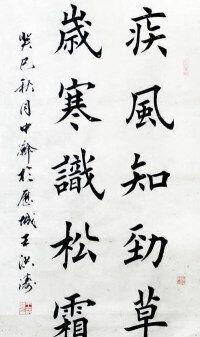 疾風知勁草
歲寒識松霜
癸巳秋月中澣於應城王洪濤